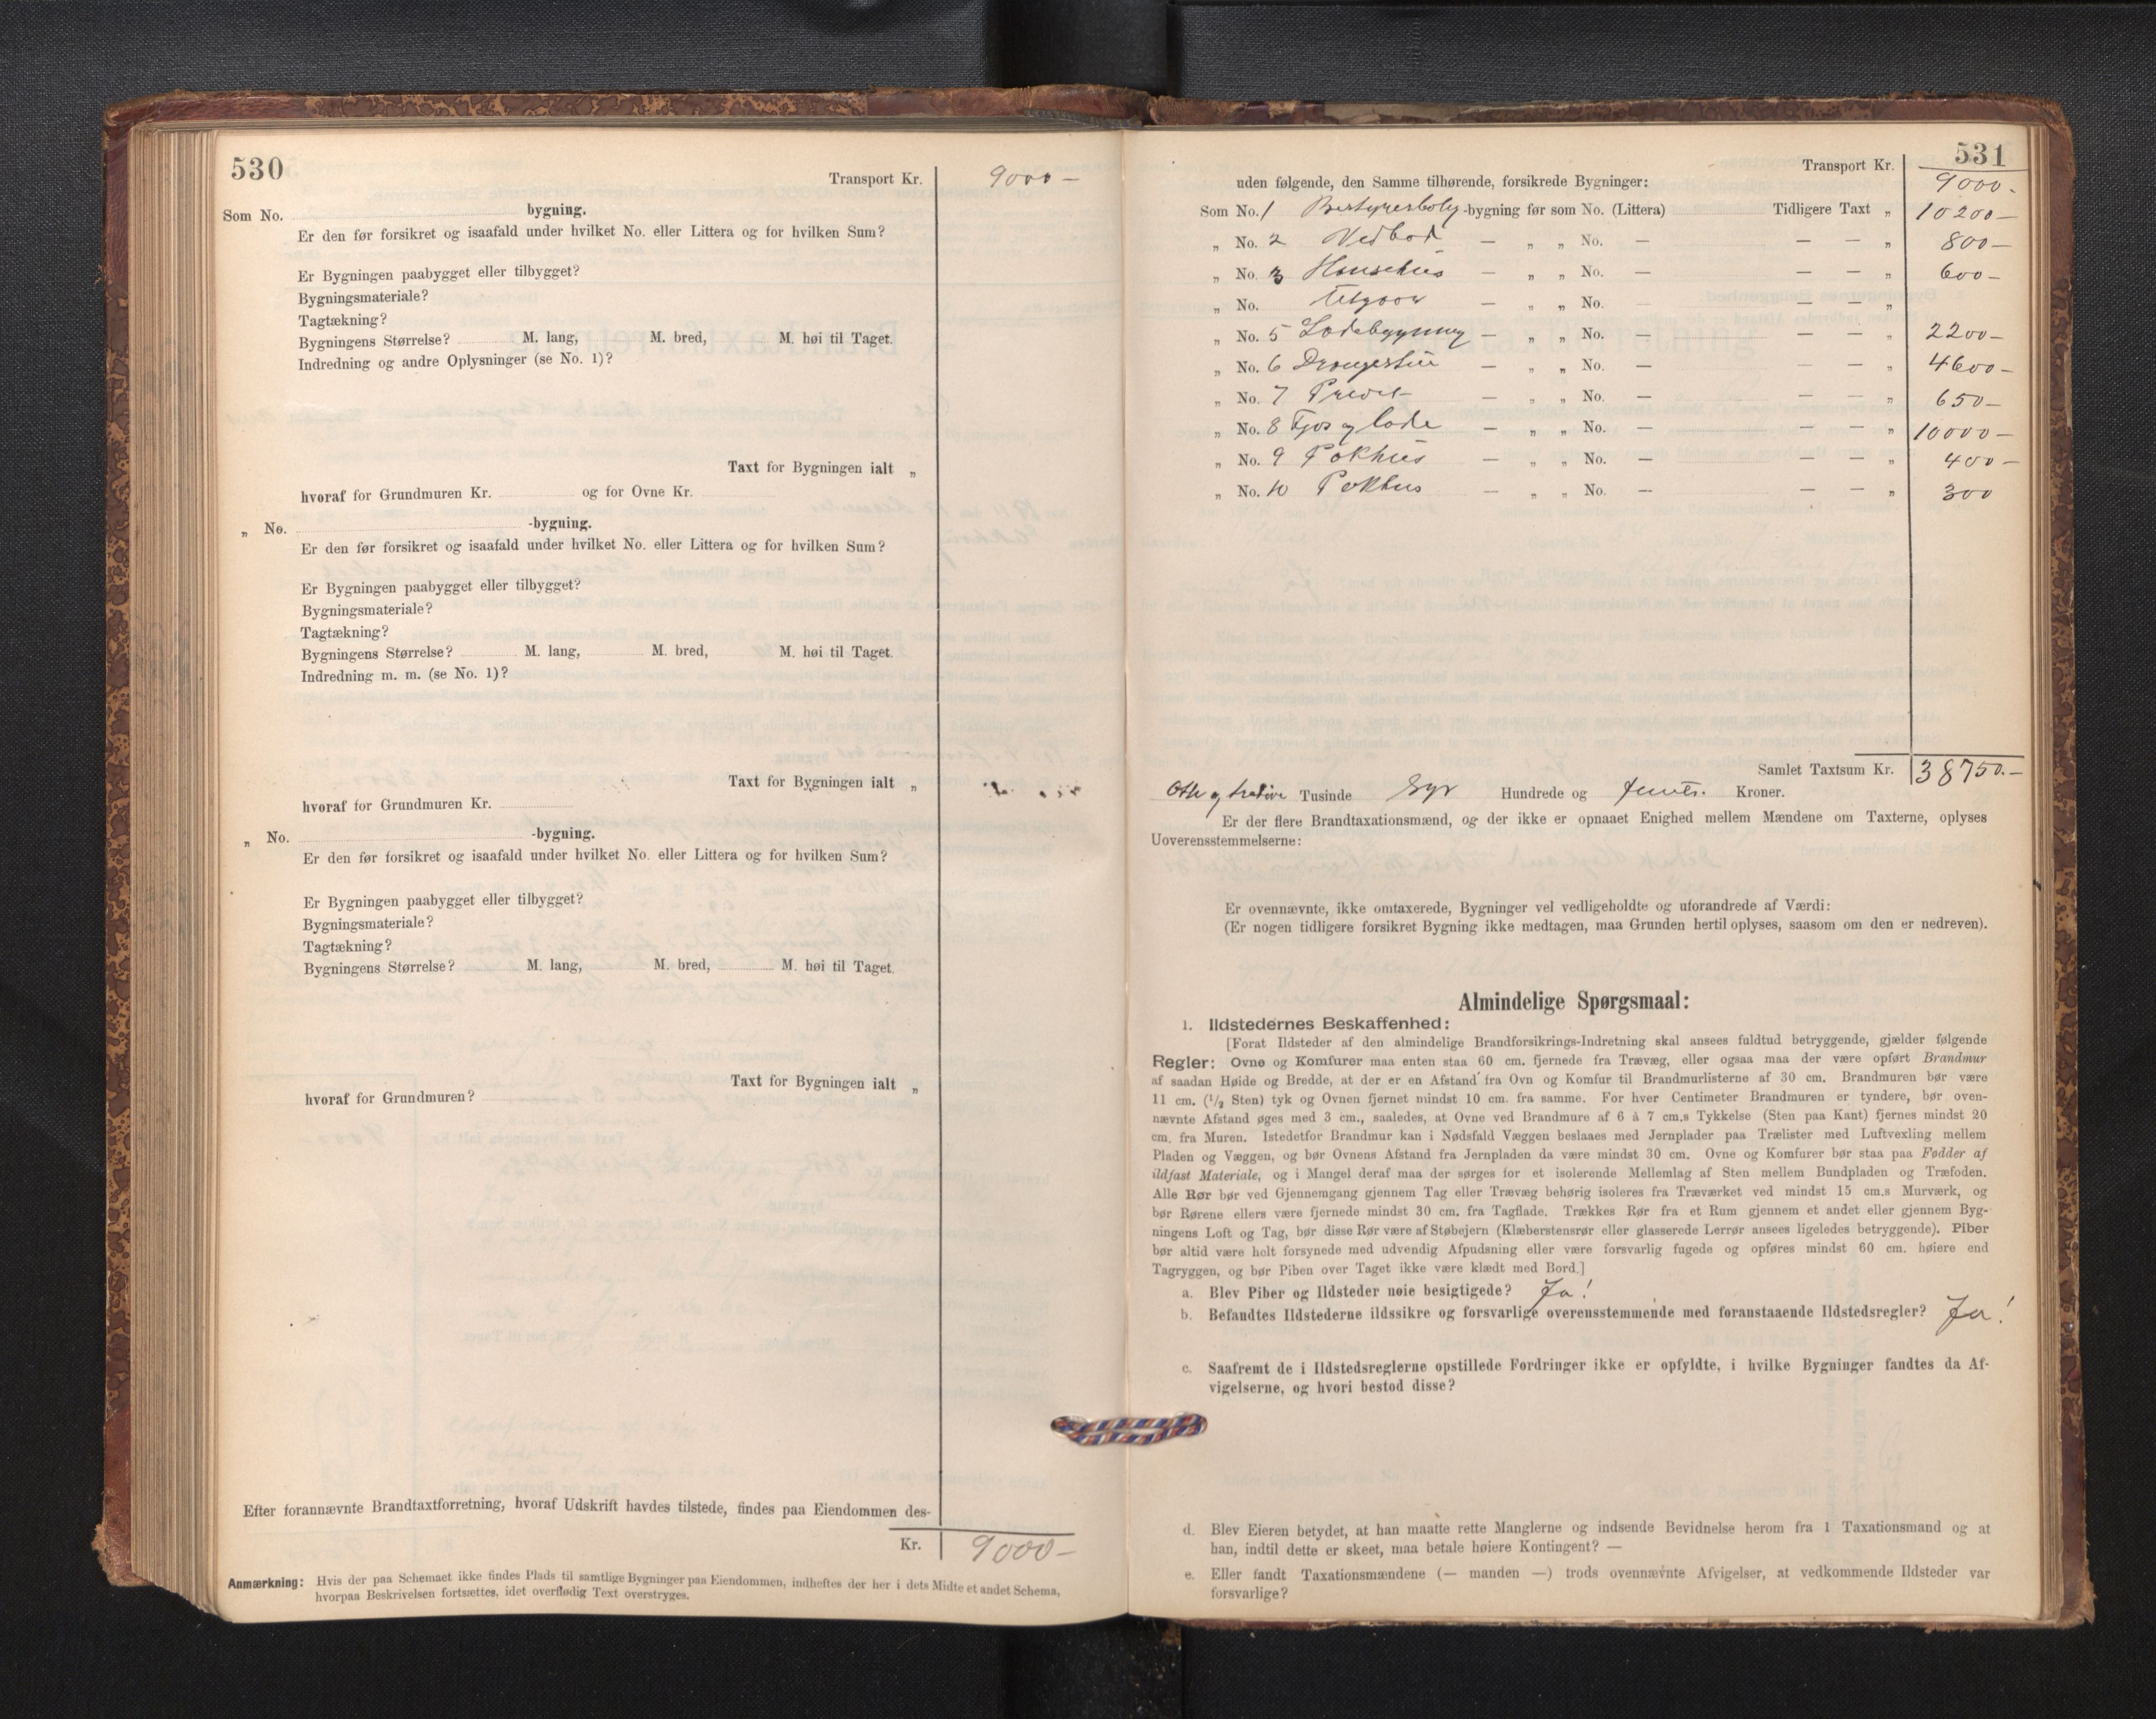 530
Transport Kr. 9000 –
Som No. bygning.
Er den før forsikret og isaafald under hvilket No. eller Littera og for hvilken Sum?
Er Bygningen paabygget eller tilbygget?
Bygningsmateriale?
Tagtækning?
Bygningens Størrelse? M. lang, M. bred, M. høi til Taget.
Indredning og andre Oplysninger (se No. 1)?
Taxt for Bygningen ialt „
hvoraf for Grundmuren Kr. og for Ovne Kr.
„ No. -bygning.
Er den før forsikret og isaafald under hvilket No. eller Littera og for hvilken Sum?
Er Bygningen paabygget eller tilbygget?
Bygningsmateriale?
Tagtækning?
Bygningens Størrelse? M. lang, M. bred, M. høi til Taget.
Indredning m. m. (se No. 1)?
Taxt for Bygningen ialt „
hvoraf for Grundmuren Kr.
„ No. -bygning.
Er den før forsikret og isaafald under hvilket No. eller Littera og for hvilken Sum?
Er Bygningen paabygget eller tilbygget?
Bygningsmateriale?
Tagtækning?
Bygningens Størrelse? M. lang, M. bred, M. høi til Taget.
Taxt for Bygningen ialt „
hvoraf for Grundmuren?
Efter forannævnte Brandtaxtforretning, hvoraf Udskrift havdes tilstede, findes paa Eiendommen des-
Kr. 9000 –
Anmærkning: Hvis der paa Schemaet ikke findes Plads til samtlige Bygninger paa Eiendommen, indheftes der her i dets Midte et andet Schema,
hvorpaa Beskrivelsen fortsættes, idet overflødig Text overstryges.
531
Transport Kr. 9000 -
uden følgende, den Samme tilhørende, forsikrede Bygninger:
Som No. 1 Bestyresbolig -bygning før som No. (Littera) Tidligere Taxt „ 10200 –
„ No. 2 Vedbod — „ „ No. — — — „ 800 –
„ No. 3 Hønsehus — „ „ No. — — — „ 600 –
„ No. Utgaar — „ „ No. — — — „
„ No. 5 Ladebygning — „ „ No. — — — „ 2200 –
„ No. 6 Drengestue — „ „ No. — — — „ 4600 –
„ No. 7 — „ „ No. — — — „ 650 –
„ No. 8 Fjøs og lade — „ „ No. — — — „ 10000 –
„ No. 9 — „ „ No. — — — „ 400 –
„ No. 10 — „ „ No. — — — „ 300
Samlet Taxtsum Kr. 38750. –
Otte og tredive Tusinde Syv Hundrede og femti. Kroner.
Er der flere Brandtaxationsmænd, og der ikke er opnaaet Enighed mellem Mændene om Taxterne, oplyses
Uoverensstemmelserne:
Er ovennævnte, ikke omtaxerede, Bygninger vel vedligeholdte og uforandrede af Værdi:
(Er nogen tidligere forsikret Bygning ikke medtagen, maa Grunden hertil oplyses, saasom om den er nedreven).
Almindelige Spørgsmaal:
1. Ildstedernes Beskaffenhed:
[Forat Ildsteder af den almindelige Brandforsikrings-Indretning skal ansees fuldtud betryggende, gjælder følgende
Regler: Ovne og Komfurer maa enten staa 60 cm. fjernede fra Trævæg, eller ogsaa maa der være opført Brandmur
af saadan Høide og Bredde, at der er en Afstand fra Ovn og Komfur til Brandmurlisterne af 30 cm. Brandmuren bør være
11 cm. (1/2 Sten) tyk og Ovnen fjernet mindst 10 cm. fra samme. For hver Centimeter Brandmuren er tyndere, bør oven-
nævnte Afstand øges med 3 cm., saaledes, at Ovne ved Brandmure af 6 à 7 cm.s Tykkelse (Sten paa Kant) fjernes mindst 20
cm. fra Muren. Istedetfor Brandmur kan i Nødsfald Væggen beslaaes med Jernplader paa Trælister med Luftvexling mellem
Pladen og Væggen, og bør Ovnens Afstand fra Jernpladen da være mindst 30 cm. Ovne og Komfurer bør staa paa Fødder af
ildfast Materiale, og i Mangel deraf maa der sørges for et isolerende Mellemlag af Sten mellem Bundpladen og Træfoden.
Alle Rør bør ved Gjennemgang gjennem Tag eller Trævæg behørig isoleres fra Træværket ved mindst 15 cm.s Murværk, og
bør Rørene ellers være fjernede mindst 30 cm. fra Tagflade. Trækkes Rør fra et Rum gjennem et andet eller gjennem Byg-
ningens Loft og Tag, bør disse Rør være af Støbejern (Klæberstensrør eller glasserede Lerrør ansees ligeledes betryggende). Piber
bør altid være helt forsynede med udvendig Afpudsning eller være forsvarlig fugede og opføres mindst 60 cm. høiere end
Tagryggen, og bør Piben over Taget ikke være klædt med Bord.]
a. Blev Piber og Ildsteder nøie besigtigede? Ja!
b. Befandtes Ildstederne ildssikre og forsvarlige overensstemmende med foranstaaende Ildstedsregler? Ja!
c. Saafremt de i Ildstedsreglerne opstillede Fordringer ikke er opfyldte, i hvilke Bygninger fandtes da Af-
vigelserne, og hvori bestod disse?
d. Blev Eieren betydet, at han maatte rette Manglerne og indsende Bevidnelse herom fra 1 Taxationsmand og at
han, indtil dette er skeet, maa betale høiere Kontingent? —
e. Eller fandt Taxationsmændene (— manden —) trods ovennævnte Afvigelser, at vedkommende Ildsteder var
forsvarlige?